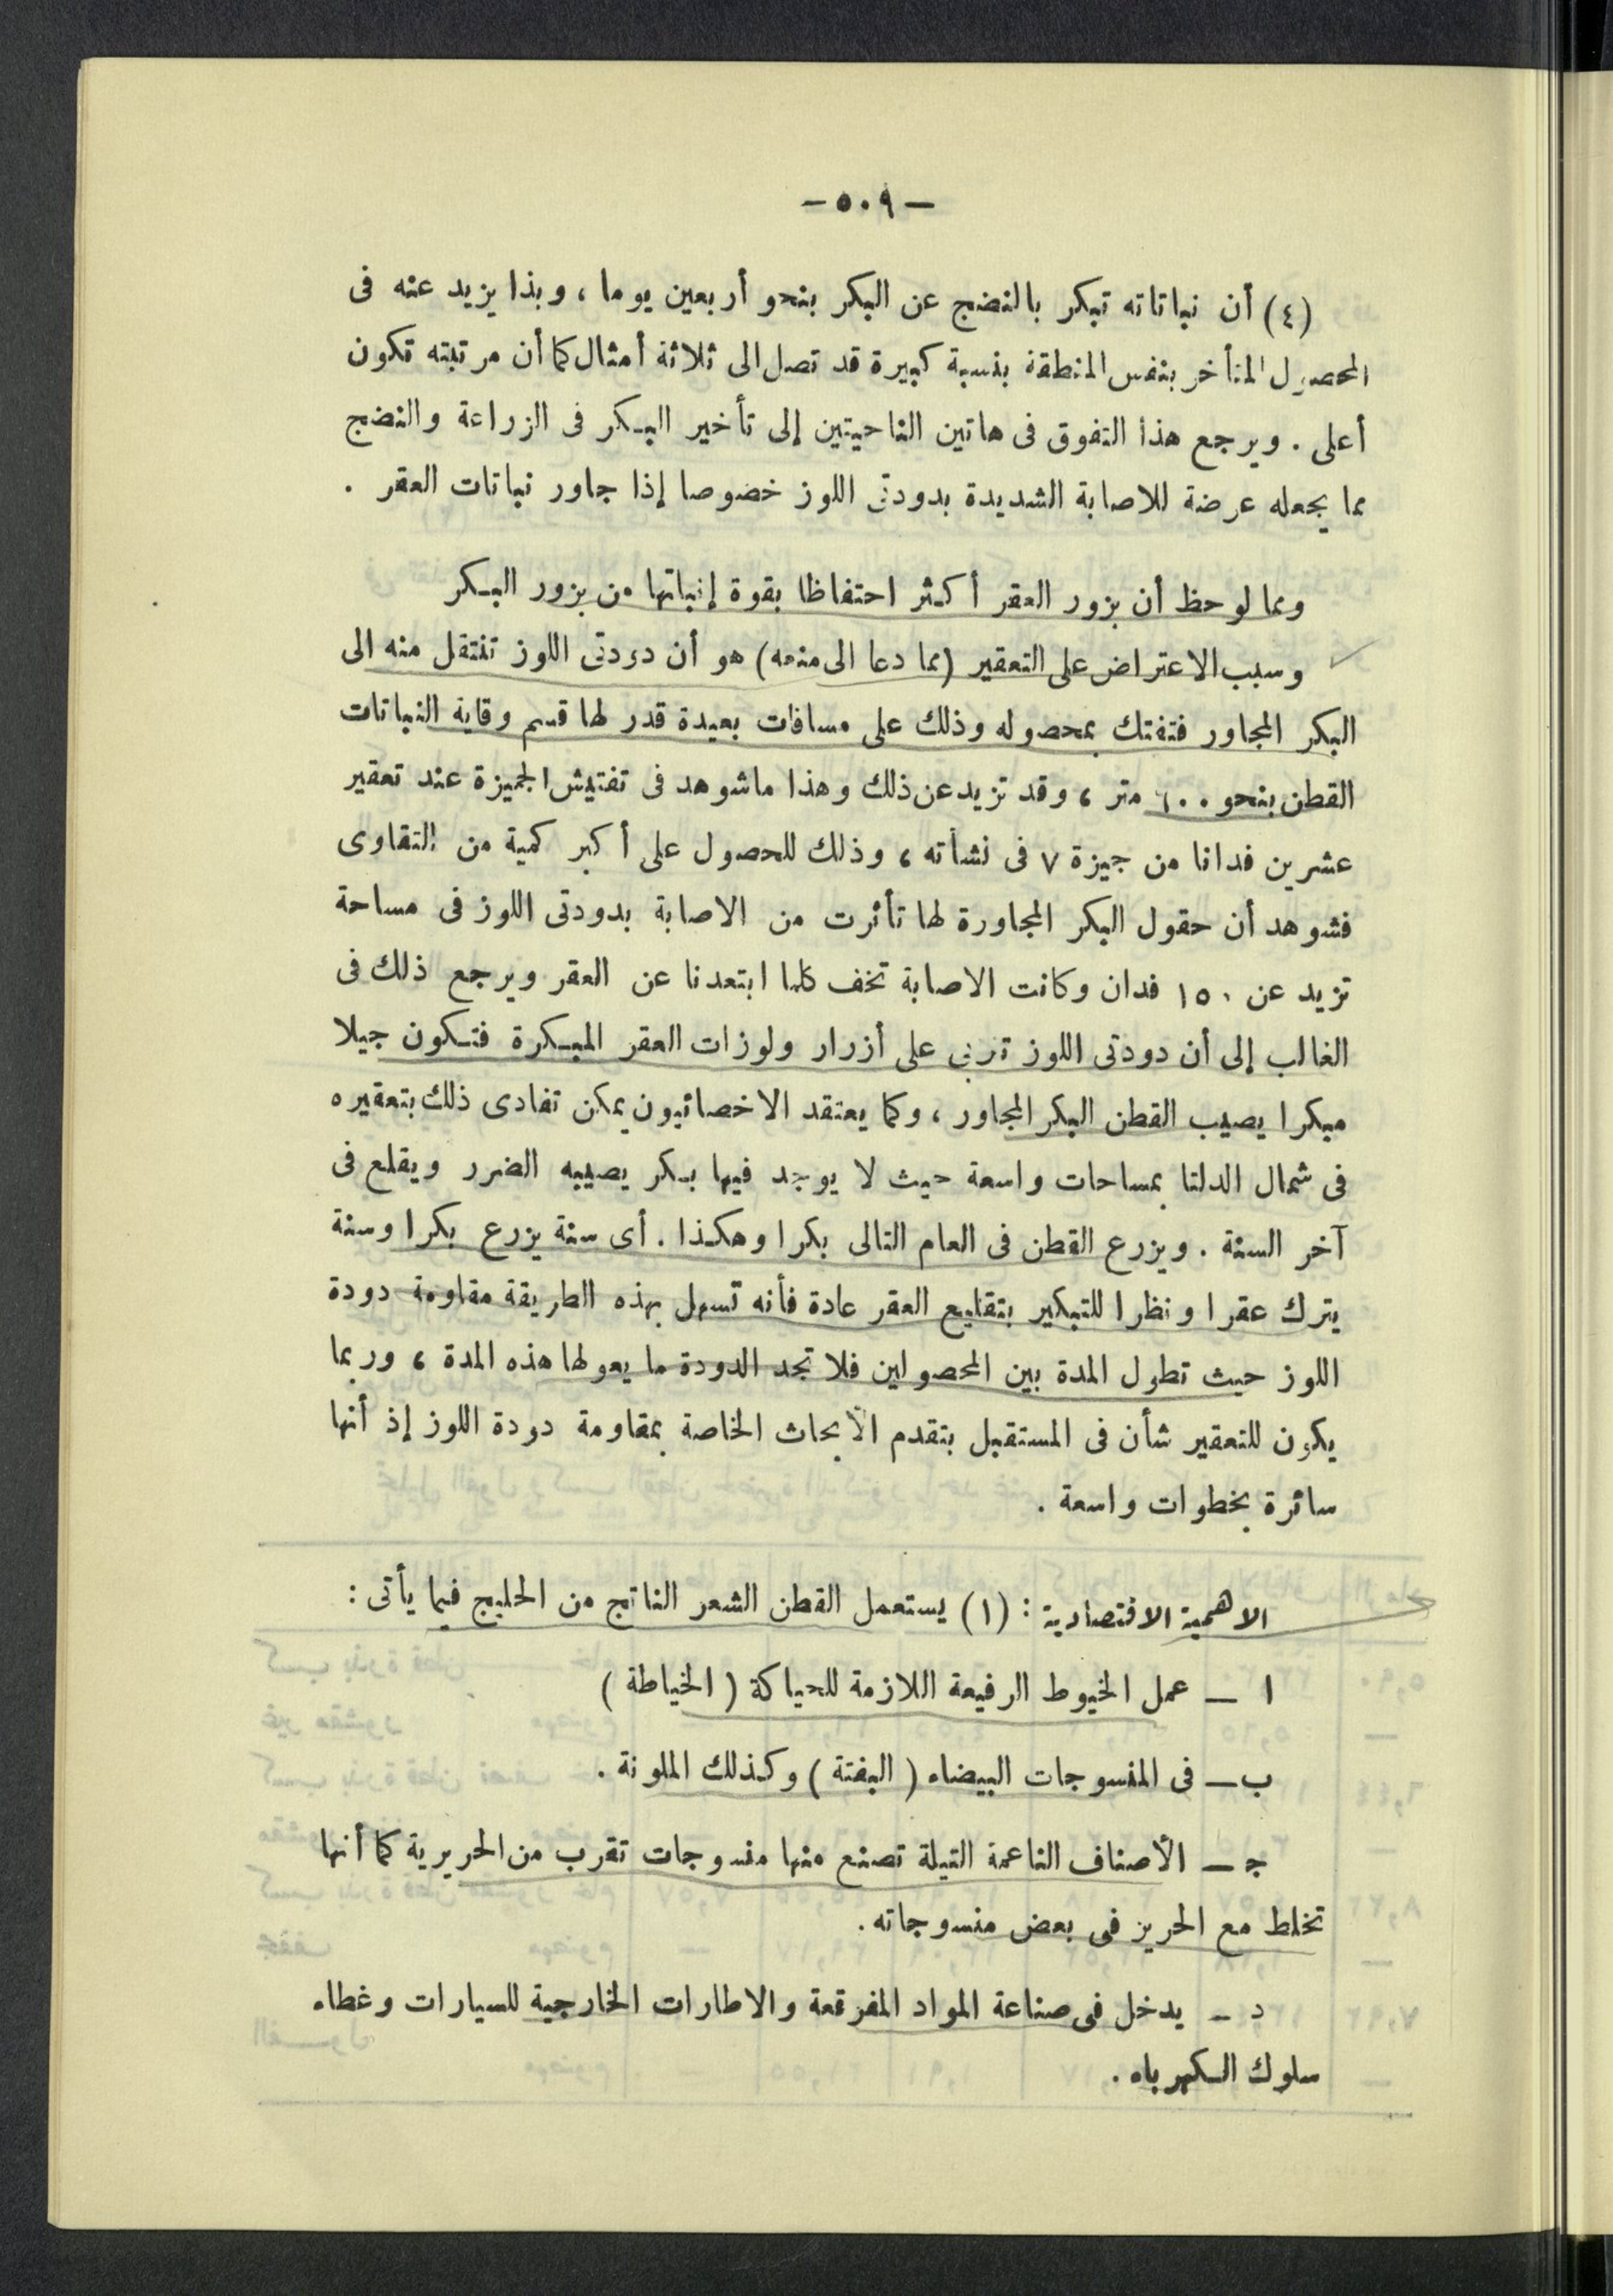 — ٥٠٩ —
(٤) أن نباتاته تبكر بالنضج عن البكر بنحو أربعين يوما ، وبذا يزيد عنه فى
المحصول المتأخر بنفس المنطقة بنسبة كبيرة قد تصل الى ثلاثة أمثال كما أن مرتبته تكون
أعلى . ويرجع هذا التفوق فى هاتين الناحيتين إلى تأخير البكر فى الزراعة والنضج
مما يجعله عرضة للاصابة الشديدة بدودتى اللوز خصوصا إذا جاور نباتات العقر .
ومما لوحظ أن بزور العقر أكثر احتفاظا بقوة إنباتها من بزور البكر
وسبب الاعتراض على التعقير (مما دعا الى منعه) هو أن دودتى اللوز تنتقل منه الى
البكر المجاور فتفتك بمحصوله وذلك على مسافات بعيدة قدر لها قسم وقاية النباتات
القطن بنحو ٦٠٠ متر ، وقد تزيد عن ذلك وهذا ماشوهد فى تفتيش الجميزة عند تعقير
عشرين فدانا من جيزة ٧ فى نشأته ، وذلك للحصول على أكبر كمية من التقاوى
فشوهد أن حقول البكر المجاورة لها تأثرت من الاصابة بدودتى اللوز فى مساحة
تزيد عن ١٥٠ فدان وكانت الاصابة تخف كلما ابتعدنا عن العقر ويرجع ذلك فى
الغالب إلى أن دودتى اللوز تربى على أزرار ولوزات العقر المبكرة فتكون جيلا
مبكرا يصيب القطن البكر المجاور ، وكما يعتقد الاخصائيون يمكن تفادى ذلك بتعقيره
فى شمال الدلتا بمساحات واسعة حيث لا يوجد فيها بكر يصيبه الضرر ويقلع فى
آخر السنة . ويزرع القطن فى العام التالى بكرا وهكذا . أى سنة يزرع بكرا وسنة
يترك عقرا ونظرا للتبكير بتقليع العقر عادة فأنه تسهل بهذه الطريقة مقاومة دودة
اللوز حيث تطول المدة بين المحصولين فلا تجد الدودة ما يعولها هذه المدة ، وربما
يكون للتعقير شأن فى المستقبل بتقدم الأبحاث الخاصة بمقاومة دودة اللوز إذ أنها
سائرة بخطوات واسعة .
الاهمية الاقتصادية : (١) يستعمل القطن الشعر الناتج من الحليج فيما يأتى :
ا — عمل الخيوط الرفيعة اللازمة للحياكة ( الخياطة )
ب — فى المنسوجات البيضاء ( البفتة ) وكذلك الملونة .
ج — الأصناف الناعمة التيلة تصنع منها منسوجات تقرب من الحريرية كما أنها
تخلط مع الحرير فى بعض منسوجاته .
د — يدخل فى صناعة المواد المفرقعة والاطارات الخارجية للسيارات وغطاء
سلوك الكهرباء .